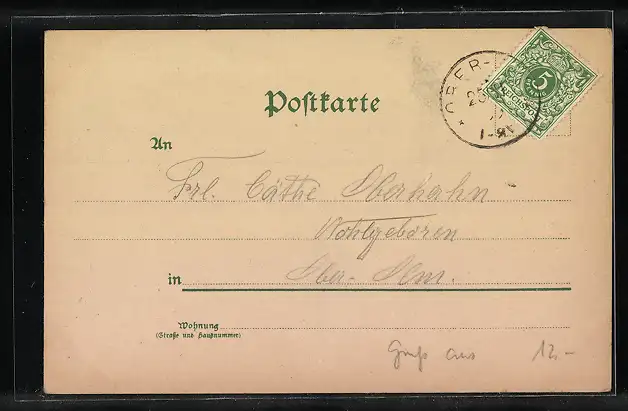 Postkarte
OBER-
25
1-2N
5
PFENNIG
REICHSPOST
An
Frl. Cäthe Oberhahn
Wohlgeboren
in Ober-Olm.
Wohnung
(Straße und Hausnummer)
Gruß aus 12.-